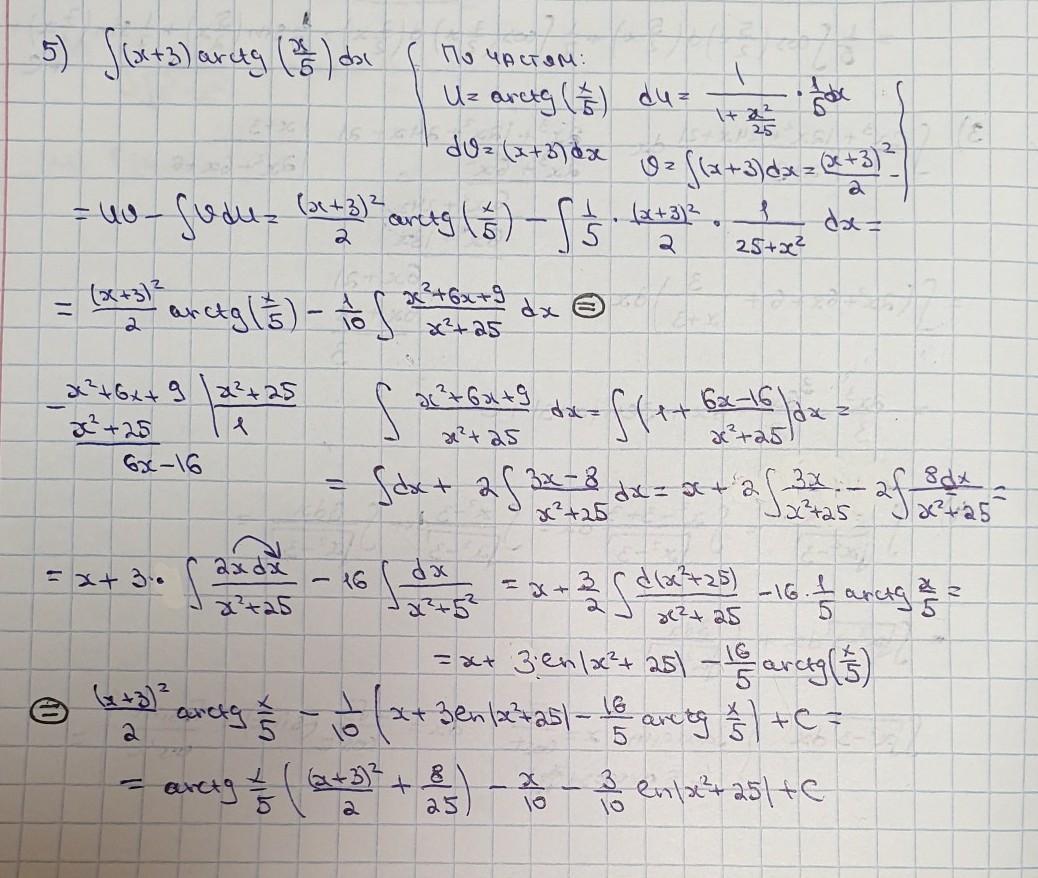 5) ∫(x+3) arctg (x/5) dx { По частям:
U = arctg(x/5) du = 1/(1+x²/25) · 1/5 dx
dϑ = (x+3)dx ϑ = ∫(x+3)dx = (x+3)²/2 }
= Uϑ - ∫ϑdu = (x+3)²/2 arctg(x/5) - ∫ 1/5 · (x+3)²/2 · 1/(25+x²) dx =
= (x+3)²/2 arctg(x/5) - 1/10 ∫ (x²+6x+9)/(x²+25) dx ⊜
x²+6x+9 | x²+25
- x²+25 | 1
6x-16
∫ (x²+6x+9)/(x²+25) dx = ∫(1 + (6x-16)/(x²+25))dx =
= ∫dx + 2∫ (3x-8)/(x²+25) dx = x + 2∫ 3x/(x²+25) - 2∫ 8dx/(x²+25) =
= x + 3· ∫ 2xdx/(x²+25) - 16 ∫ dx/(x²+5²) = x + 3/2 ∫ d(x²+25)/(x²+25) - 16 · 1/5 arctg x/5 =
= x + 3·ln|x²+25| - 16/5 arctg(x/5)
⊜ (x+3)²/2 arctg x/5 - 1/10 (x + 3ln|x²+25| - 16/5 arctg x/5) + C =
= arctg x/5 ((x+3)²/2 + 8/25) - x/10 - 3/10 ln|x²+25| + C